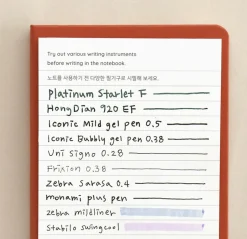 Try out various writing instruments
before writing in the notebook.
노트를 사용하기 전 다양한 필기구로 시필해 보세요.
Platinum Starlet F
HongDian 920 EF
Iconic Mild gel pen 0.5
Iconic Bubbly gel pen 0.38
Uni Signo 0.28
Frixion 0.38
Zebra Sarasa 0.4
monami plus pen
zebra mildliner
Stabilo swing cool